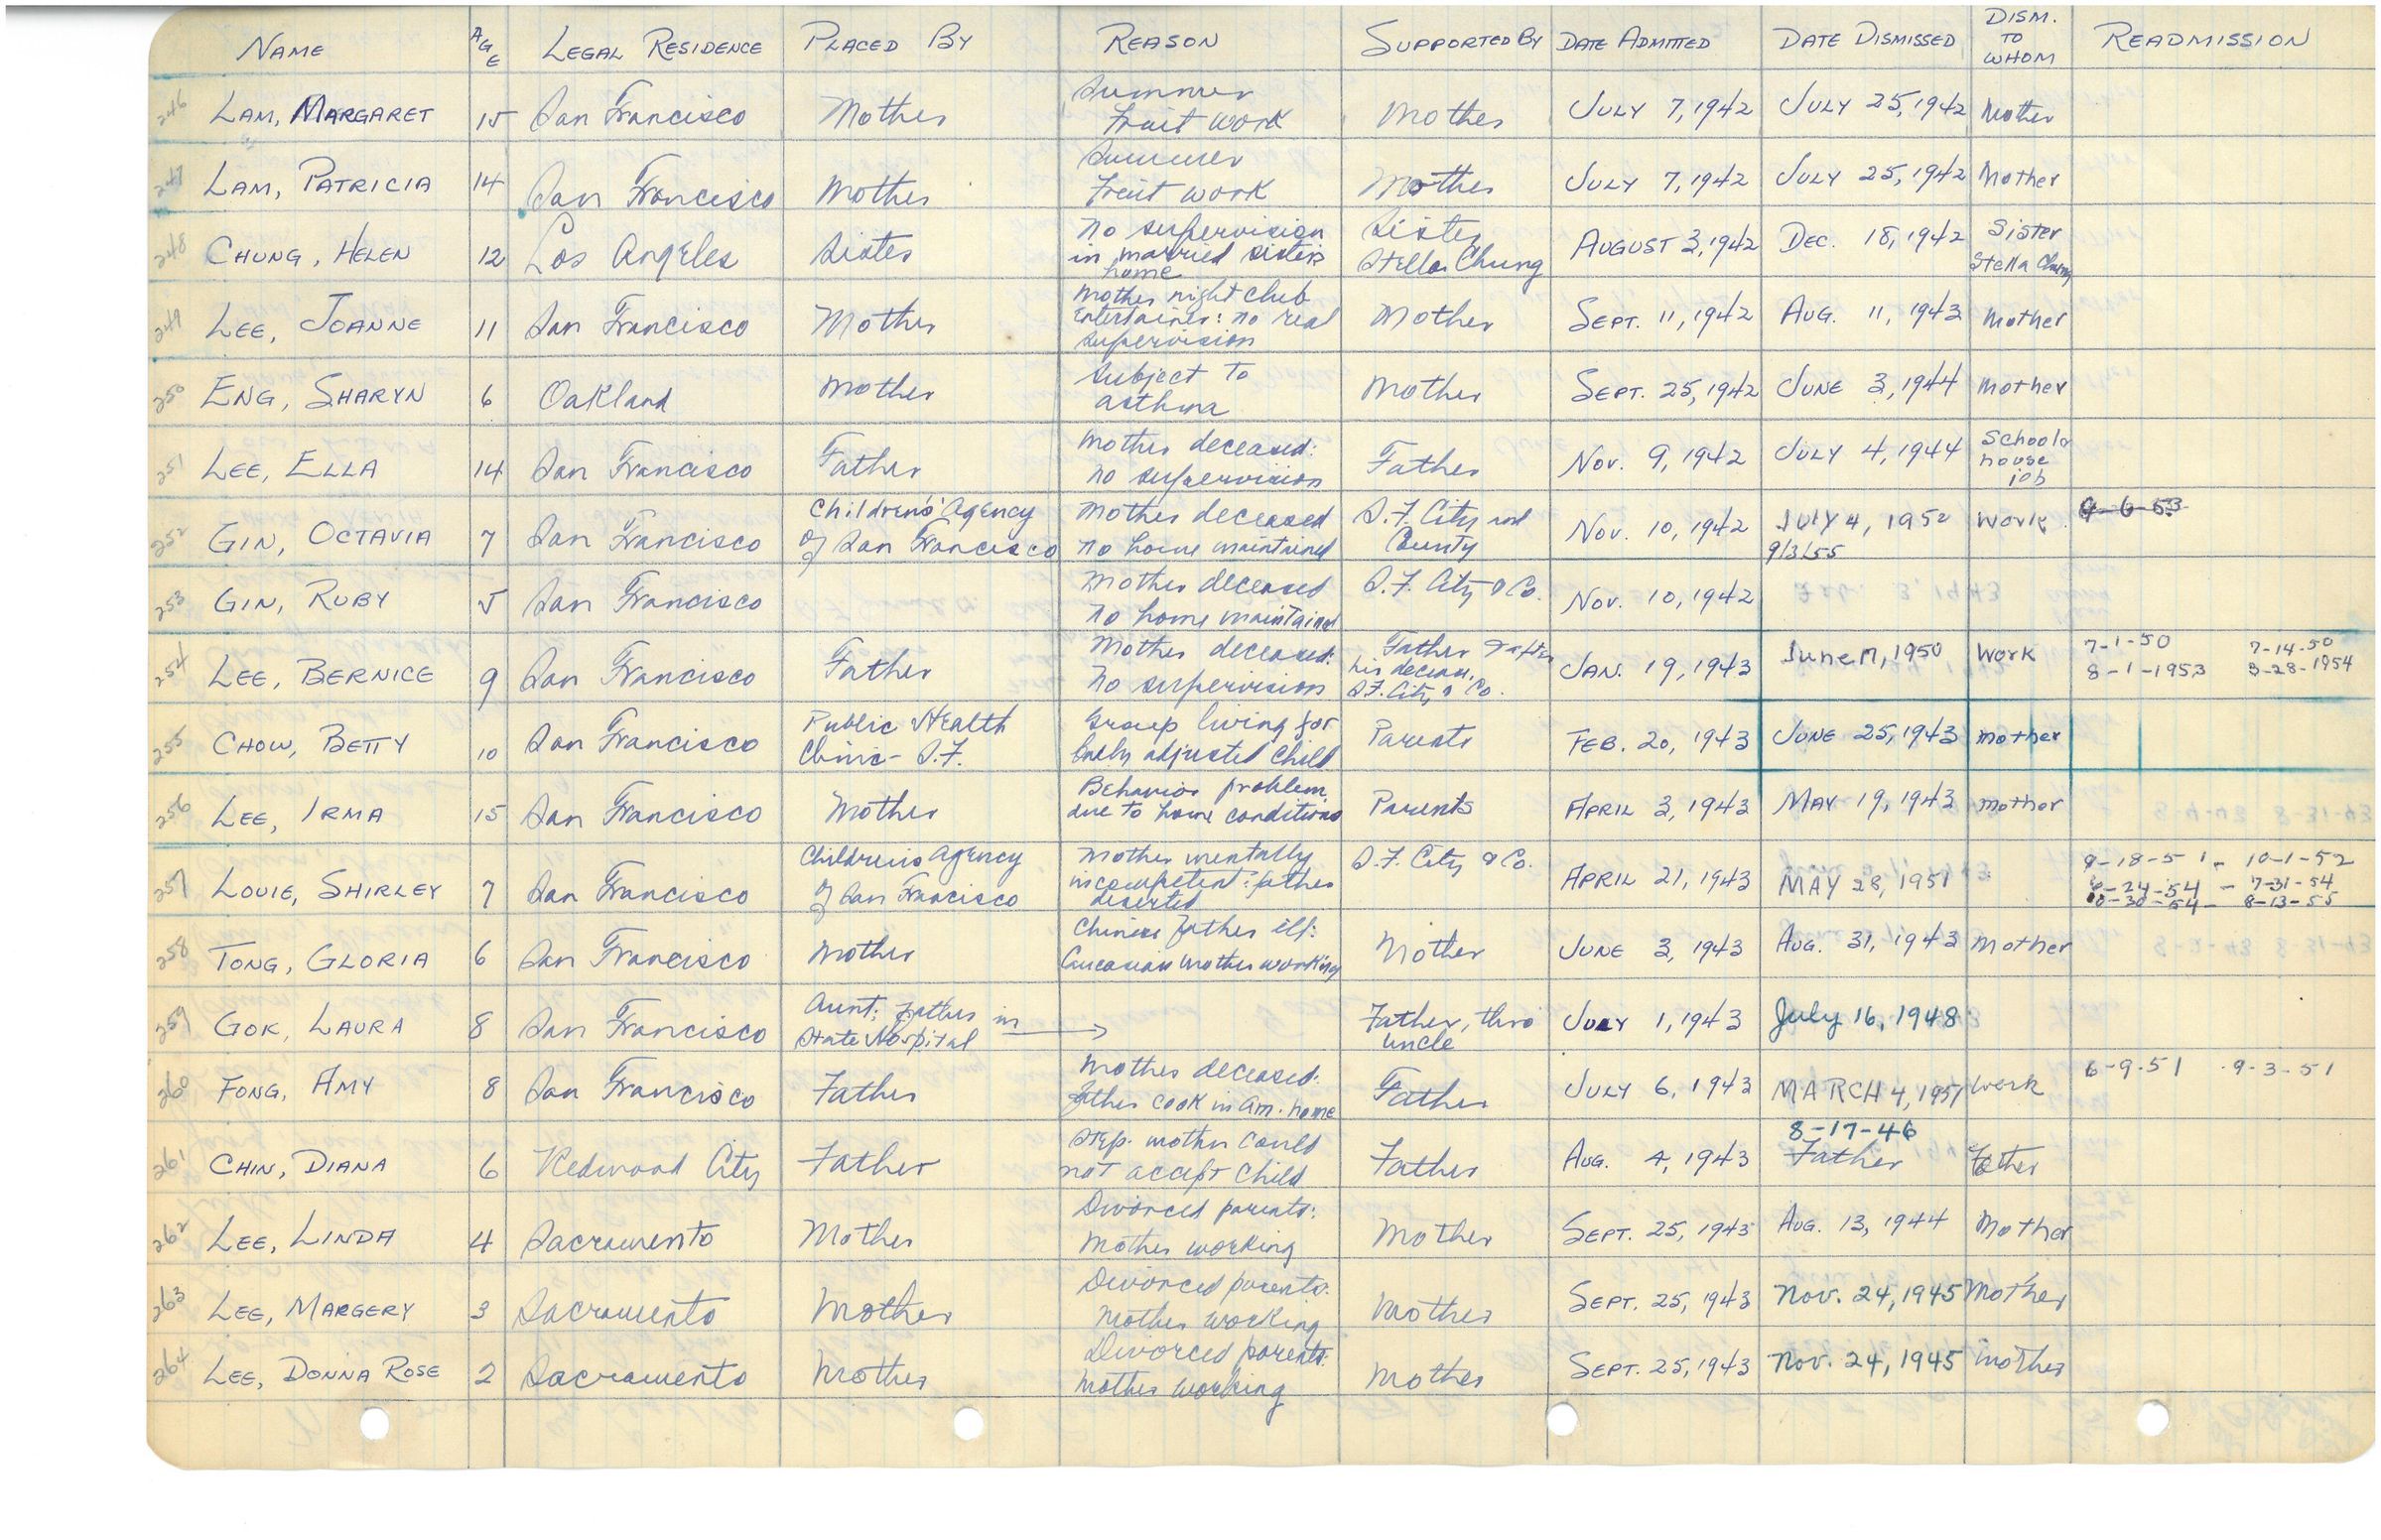 NAME AGE LEGAL RESIDENCE PLACED BY REASON SUPPORTED BY DATE ADMITTED DATE DISMISSED DISM. TO WHOM READMISSION
246 LAM, MARGARET 15 San Francisco Mother Summer Fruit work Mother JULY 7, 1942 JULY 25, 1942 Mother
247 LAM, PATRICIA 14 San Francisco Mother Summer Fruit work Mother JULY 7, 1942 JULY 25, 1942 Mother
248 CHUNG, HELEN 12 Los Angeles Sister No supervision in married sister's home Sister Stella Chung AUGUST 3, 1942 DEC. 18, 1942 Sister Stella Chung
249 LEE, JOANNE 11 San Francisco Mother Mother night club Entertainer: no real supervision Mother SEPT. 11, 1942 AUG. 11, 1943 Mother
250 ENG, SHARYN 6 Oakland Mother Subject to asthma Mother SEPT. 25, 1942 JUNE 3, 1944 Mother
251 LEE, ELLA 14 San Francisco Father Mother deceased: no supervision Father NOV. 9, 1942 JULY 4, 1944 School house job
252 GIN, OCTAVIA 7 San Francisco Children's' Agency of San Francisco Mother deceased no home maintained S.F. City and County NOV. 10, 1942 JULY 4, 1952 9/3/55 Work
253 GIN, RUBY 5 San Francisco Mother deceased no home maintained S.F. City & Co. NOV. 10, 1942
254 LEE, BERNICE 9 San Francisco Father Mother deceased: no supervision Father & after his decease, S.F. City & Co. JAN. 19, 1943 June 17, 1950 Work 7-1-50 7-14-50 8-1-1953 3-28-1954
255 CHOW, BETTY 10 San Francisco Public Health Clinic - S.F. Group living for badly adjusted child Parents FEB. 20, 1943 JUNE 25, 1943 Mother
256 LEE, IRMA 15 San Francisco Mother Behavior problem due to home conditions Parents APRIL 3, 1943 MAY 19, 1943 Mother
257 LOUIE, SHIRLEY 7 San Francisco Children's Agency of San Francisco Mother mentally incompetent: father deserted S.F. City & Co. APRIL 21, 1943 MAY 28, 1951 9-18-51 - 10-1-52 6-24-54 - 7-31-54 8-13-55
258 TONG, GLORIA 6 San Francisco Mother Chinese father ill: Caucasian mother working Mother JUNE 3, 1943 AUG. 31, 1943 Mother
259 GOK, LAURA 8 San Francisco Aunt: Father in State Hospital → Father, thro uncle JULY 1, 1943 July 16, 1948
260 FONG, AMY 8 San Francisco Father Mother deceased: father cook in Am. home Father JULY 6, 1943 MARCH 4, 1951 Work 6-9-51 9-3-51
261 CHIN, DIANA 6 Redwood City Father Step-mother could not accept child Father AUG. 4, 1943 8-17-46 Father Father
262 LEE, LINDA 4 Sacramento Mother Divorced parents: Mother working Mother SEPT. 25, 1943 AUG. 13, 1944 Mother
263 LEE, MARGERY 3 Sacramento Mother Divorced parents: Mother working Mother SEPT. 25, 1943 Nov. 24, 1945 Mother
264 LEE, DONNA ROSE 2 Sacramento Mother Divorced parents: Mother working Mother SEPT. 25, 1943 Nov. 24, 1945 Mother